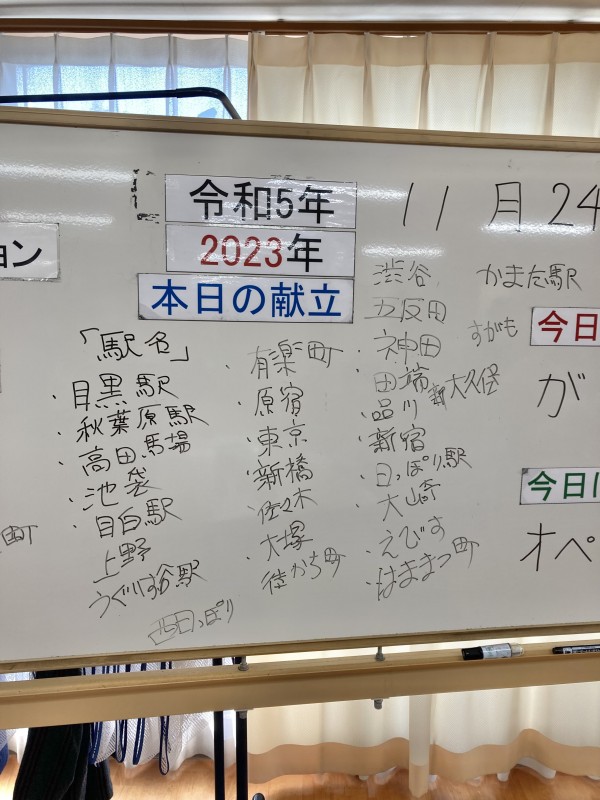 令和5年
11月24
2023年
本日の献立
ョン
町
「駅名」
・目黒駅
・秋葉原駅
・高田馬場
・池袋
・目白駅
上野
うぐいす谷駅
西日っぽり
・有楽町
・原宿
・東京
・新橋
・佐々木
・大塚
・徒かち町
渋谷
五反田
・神田
・田端
・品川
・新宿
・日っぽり駅
・大崎
・えびす
・はままつ町
かまた駅
すがも
新大久保
今日
が
今日
オペ